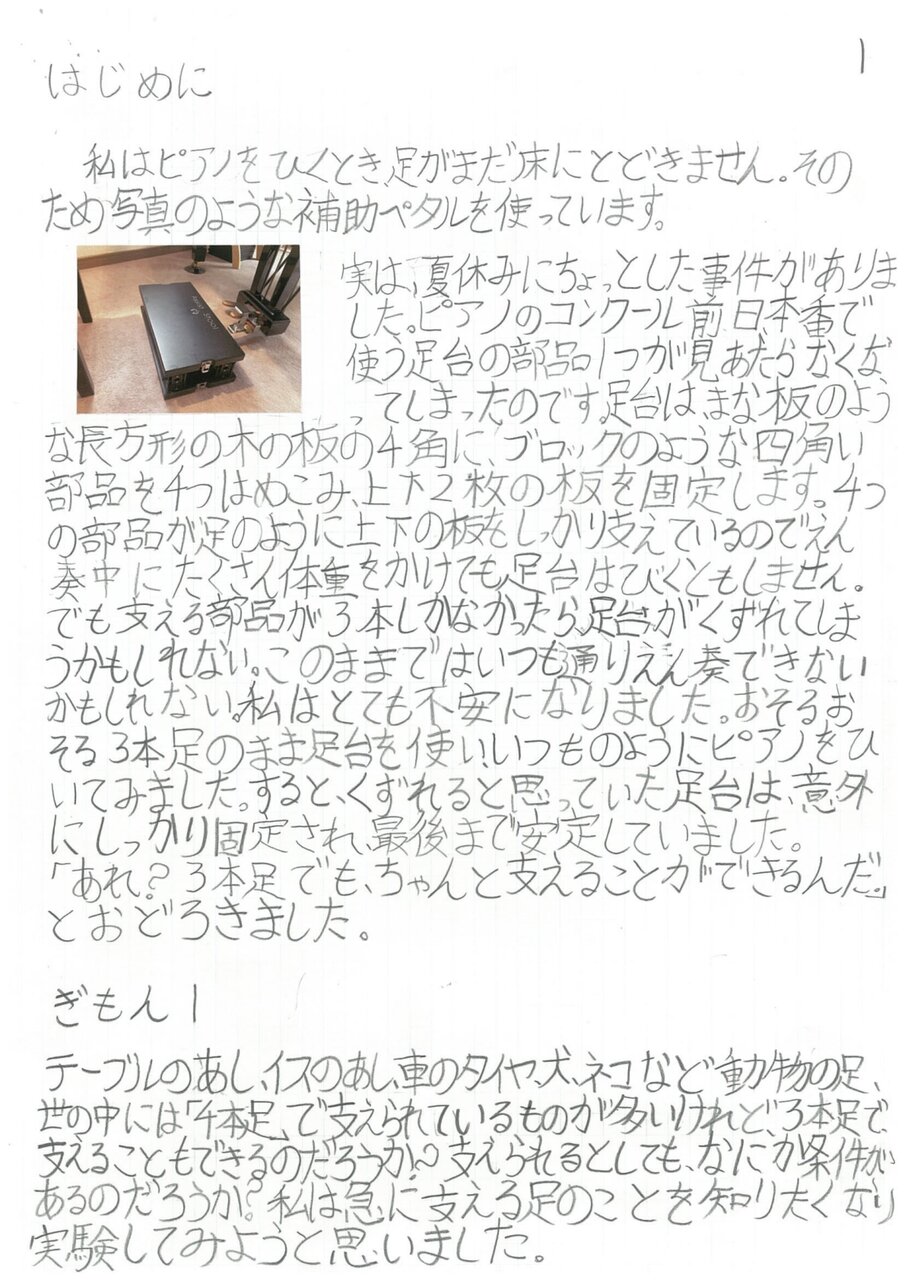 1
はじめに
私はピアノをひくとき、足がまだ床にとどきません。その
ため写真のような補助ペダルを使っています。
実は、夏休みにちょっとした事件がありま
した。ピアノのコンクール前日、本番で
使う足台の部品1つが見あたらなくな
ってしまったのです。足台は、まな板のよう
な長方形の木の板の4角に、ブロックのような四角い
部品を4つはめこみ、上下2枚の板を固定します。4つ
の部品が足のように上下の板をしっかり支えているのでえん
奏中にたくさん体重をかけても足台はびくともしません。
でも支える部品が3本しかなかったら、足台がくずれてしま
うかもしれない。このままではいつも通りえん奏できない
かもしれない。私はとても不安になりました。おそるお
そる3本足のまま足台を使い、いつものようにピアノをひ
いてみました。すると、くずれると思っていた足台は、意外
にしっかり固定され、最後まで安定していました。
「あれ?3本足でも、ちゃんと支えることができるんだ。」
とおどろきました。
ぎもん1
テーブルのあし、イスのあし、車のタイヤ、犬、ネコなど動物の足、
世の中には「4本足」で支えられているものが多いけれど、3本足で
支えることもできるのだろうか?支えられるとしても、なにか条件が
あるのだろうか?私は急に支える足のことを知りたくなり
実験してみようと思いました。